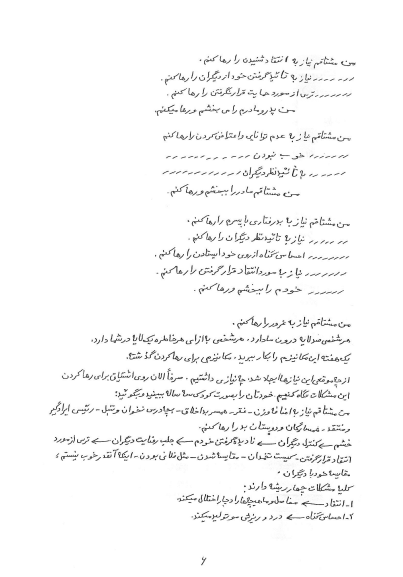 من مشتاقم نیاز به انتقاد شنیدن را رها کنم.
------- نیاز به تائید گرفتن خود از دیگران را رها کنم.
-------- ترس از مورد حمایت قرار گرفتن را رها کنم.
من پدر و مادرم را می بخشم و رها میکنم.
من مشتاقم نیاز به عدم توانایی و اعتراض کردن را رها کنم
------- خوب نبودن ----------
------- به تائید نظر دیگران -----------
من مشتاقم مادر را ببخشم و رها کنم.
من مشتاقم نیاز به بدرفتاری با پسرم را رها کنم.
------- نیاز به تائید نظر دیگران را رها کنم.
-------- احساس گناه از روی خود ایستادن را رها کنم.
-------- نیاز به مورد انتقاد قرار گرفتن را رها کنم.
-------- خودم را ببخشم و رها کنم.
من مشتاقم نیاز به غرور را رها کنم.
هر شخص صد لایه درون ما دارد، هر شخص به ازای هر خاطره یک لایه در شما دارد.
یک هفته این مکانیزم را بکار ببرید، مکانیزمی برای رها کردن گذشته!
از چه موقعی این نیازها ایجاد شد، چه نیازی داشتیم. صرفاً الان روی اشتیاق برای رها کردن
این مشکلات نگاه کنیم خودتان را بصورت کودک سه ساله ببینید و بگوئید:
من مشتاقم نیاز به اضافه وزن - فقر - همسر بداخلاق - بچه درس نخوان و تنبل - رئیس ایرادگیر
و منتقد - همسایگان و دوستان بد را رها کنم.
خشم ← کنترل دیگران ← نادیده گرفتن خودم ← جلب رضایت دیگران ← ترس از مورد
انتقاد قرار گرفتن - کیست تخمدان - مقایسه شدن - مثل فلانی بودن - اینکه آنقدر خوب نیستم،
مقایسه خود با دیگران.
کلیه مشکلات چهار ریشه دارند:
۱- انتقاد ← مفاصل و ماهیچه ها را دچار اختلال میکند.
۲- احساس گناه ← درد و ریزش مو تولید میکند.
۶